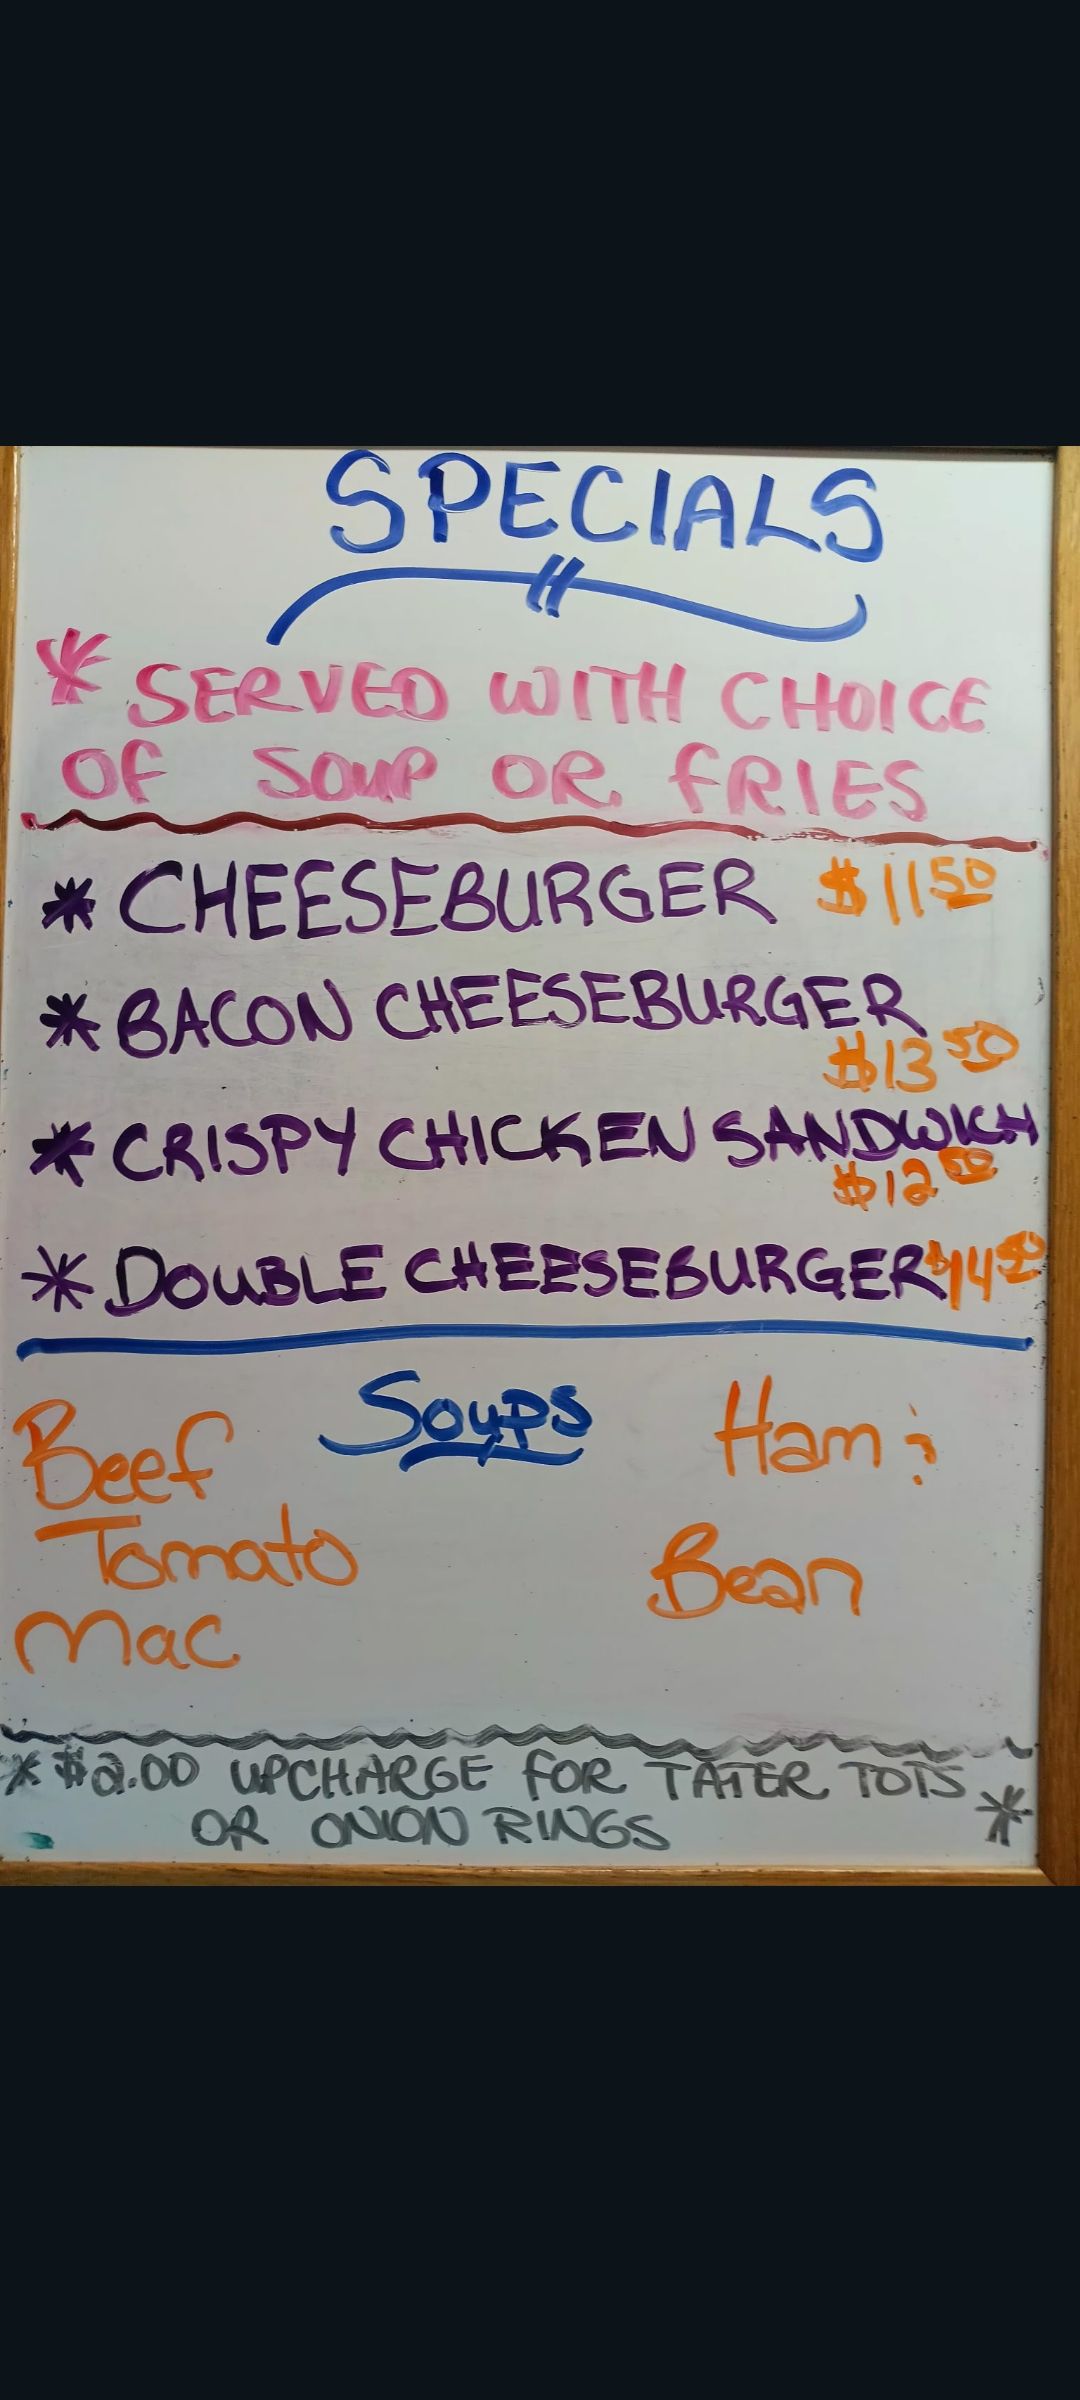 SPECIALS
* SERVED WITH CHOICE
OF SOUP OR FRIES
* CHEESEBURGER $11 50
* BACON CHEESEBURGER
$13 50
* CRISPY CHICKEN SANDWICH
$12 50
* DOUBLE CHEESEBURGER $14 50
Soups
Beef
Tomato
Mac
Ham &
Bean
* $2.00 UPCHARGE FOR TATER TOTS
OR ONION RINGS *